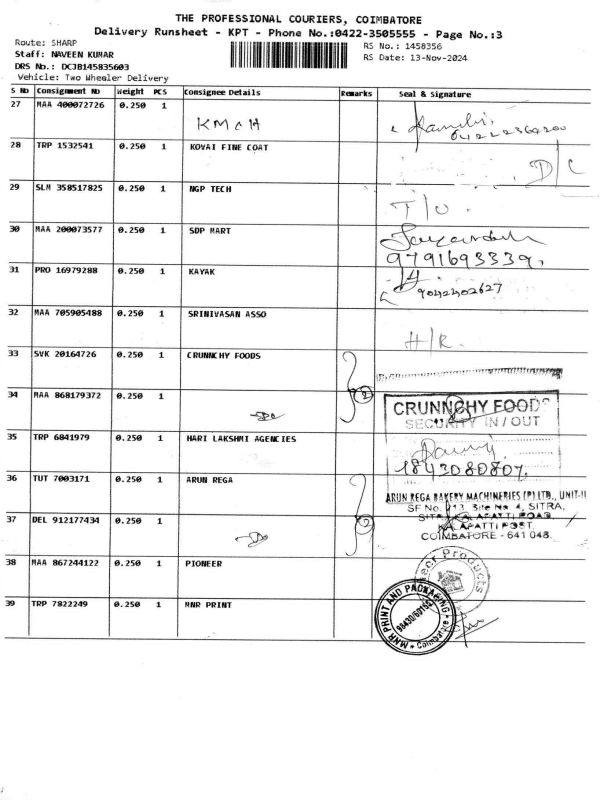 THE PROFESSIONAL COURIERS, COIMBATORE
Delivery Runsheet - KPT - Phone No.:0422-3505555 - Page No.:3
Route: SHARP
Staff: NAVEEN KUMAR
DRS No.: DCJB145835603
Vehicle: Two Wheeler Delivery
RS No.: 1458356
RS Date: 13-Nov-2024
S No Consignment No Weight PCS Consignee Details Remarks Seal & Signature
27 MAA 400072726 0.250 1 KMCH
28 TRP 1532541 0.250 1 KOVAI FINE COAT D/C
29 SLM 358517825 0.250 1 NGP TECH T/O.
30 MAA 200073577 0.250 1 SDP MART
9791693339,
31 PRO 16979288 0.250 1 KAYAK
9042402627
32 MAA 705905488 0.250 1 SRINIVASAN ASSO H/R.
33 SVK 20164726 0.250 1 CRUNNCHY FOODS
34 MAA 868179372 0.250 1 -Do- 2
CRUNNCHY FOODS
SECURITY IN / OUT
35 TRP 6841979 0.250 1 HARI LAKSHMI AGENCIES
1843080807.
36 TUT 7003171 0.250 1 ARUN REGA
ARUN REGA BAKERY MACHINERIES (P) LTD., UNIT-II
SF No. 213, Site No. 4, SITRA,
KALAPATTI ROAD,
KALAPATTI POST,
COIMBATORE - 641 048.
37 DEL 912177434 0.250 1 -Do- 2
38 MAA 867244122 0.250 1 PIONEER
39 TRP 7822249 0.250 1 MNR PRINT
MNR PRINT AND PACKAGING
Coimbatore